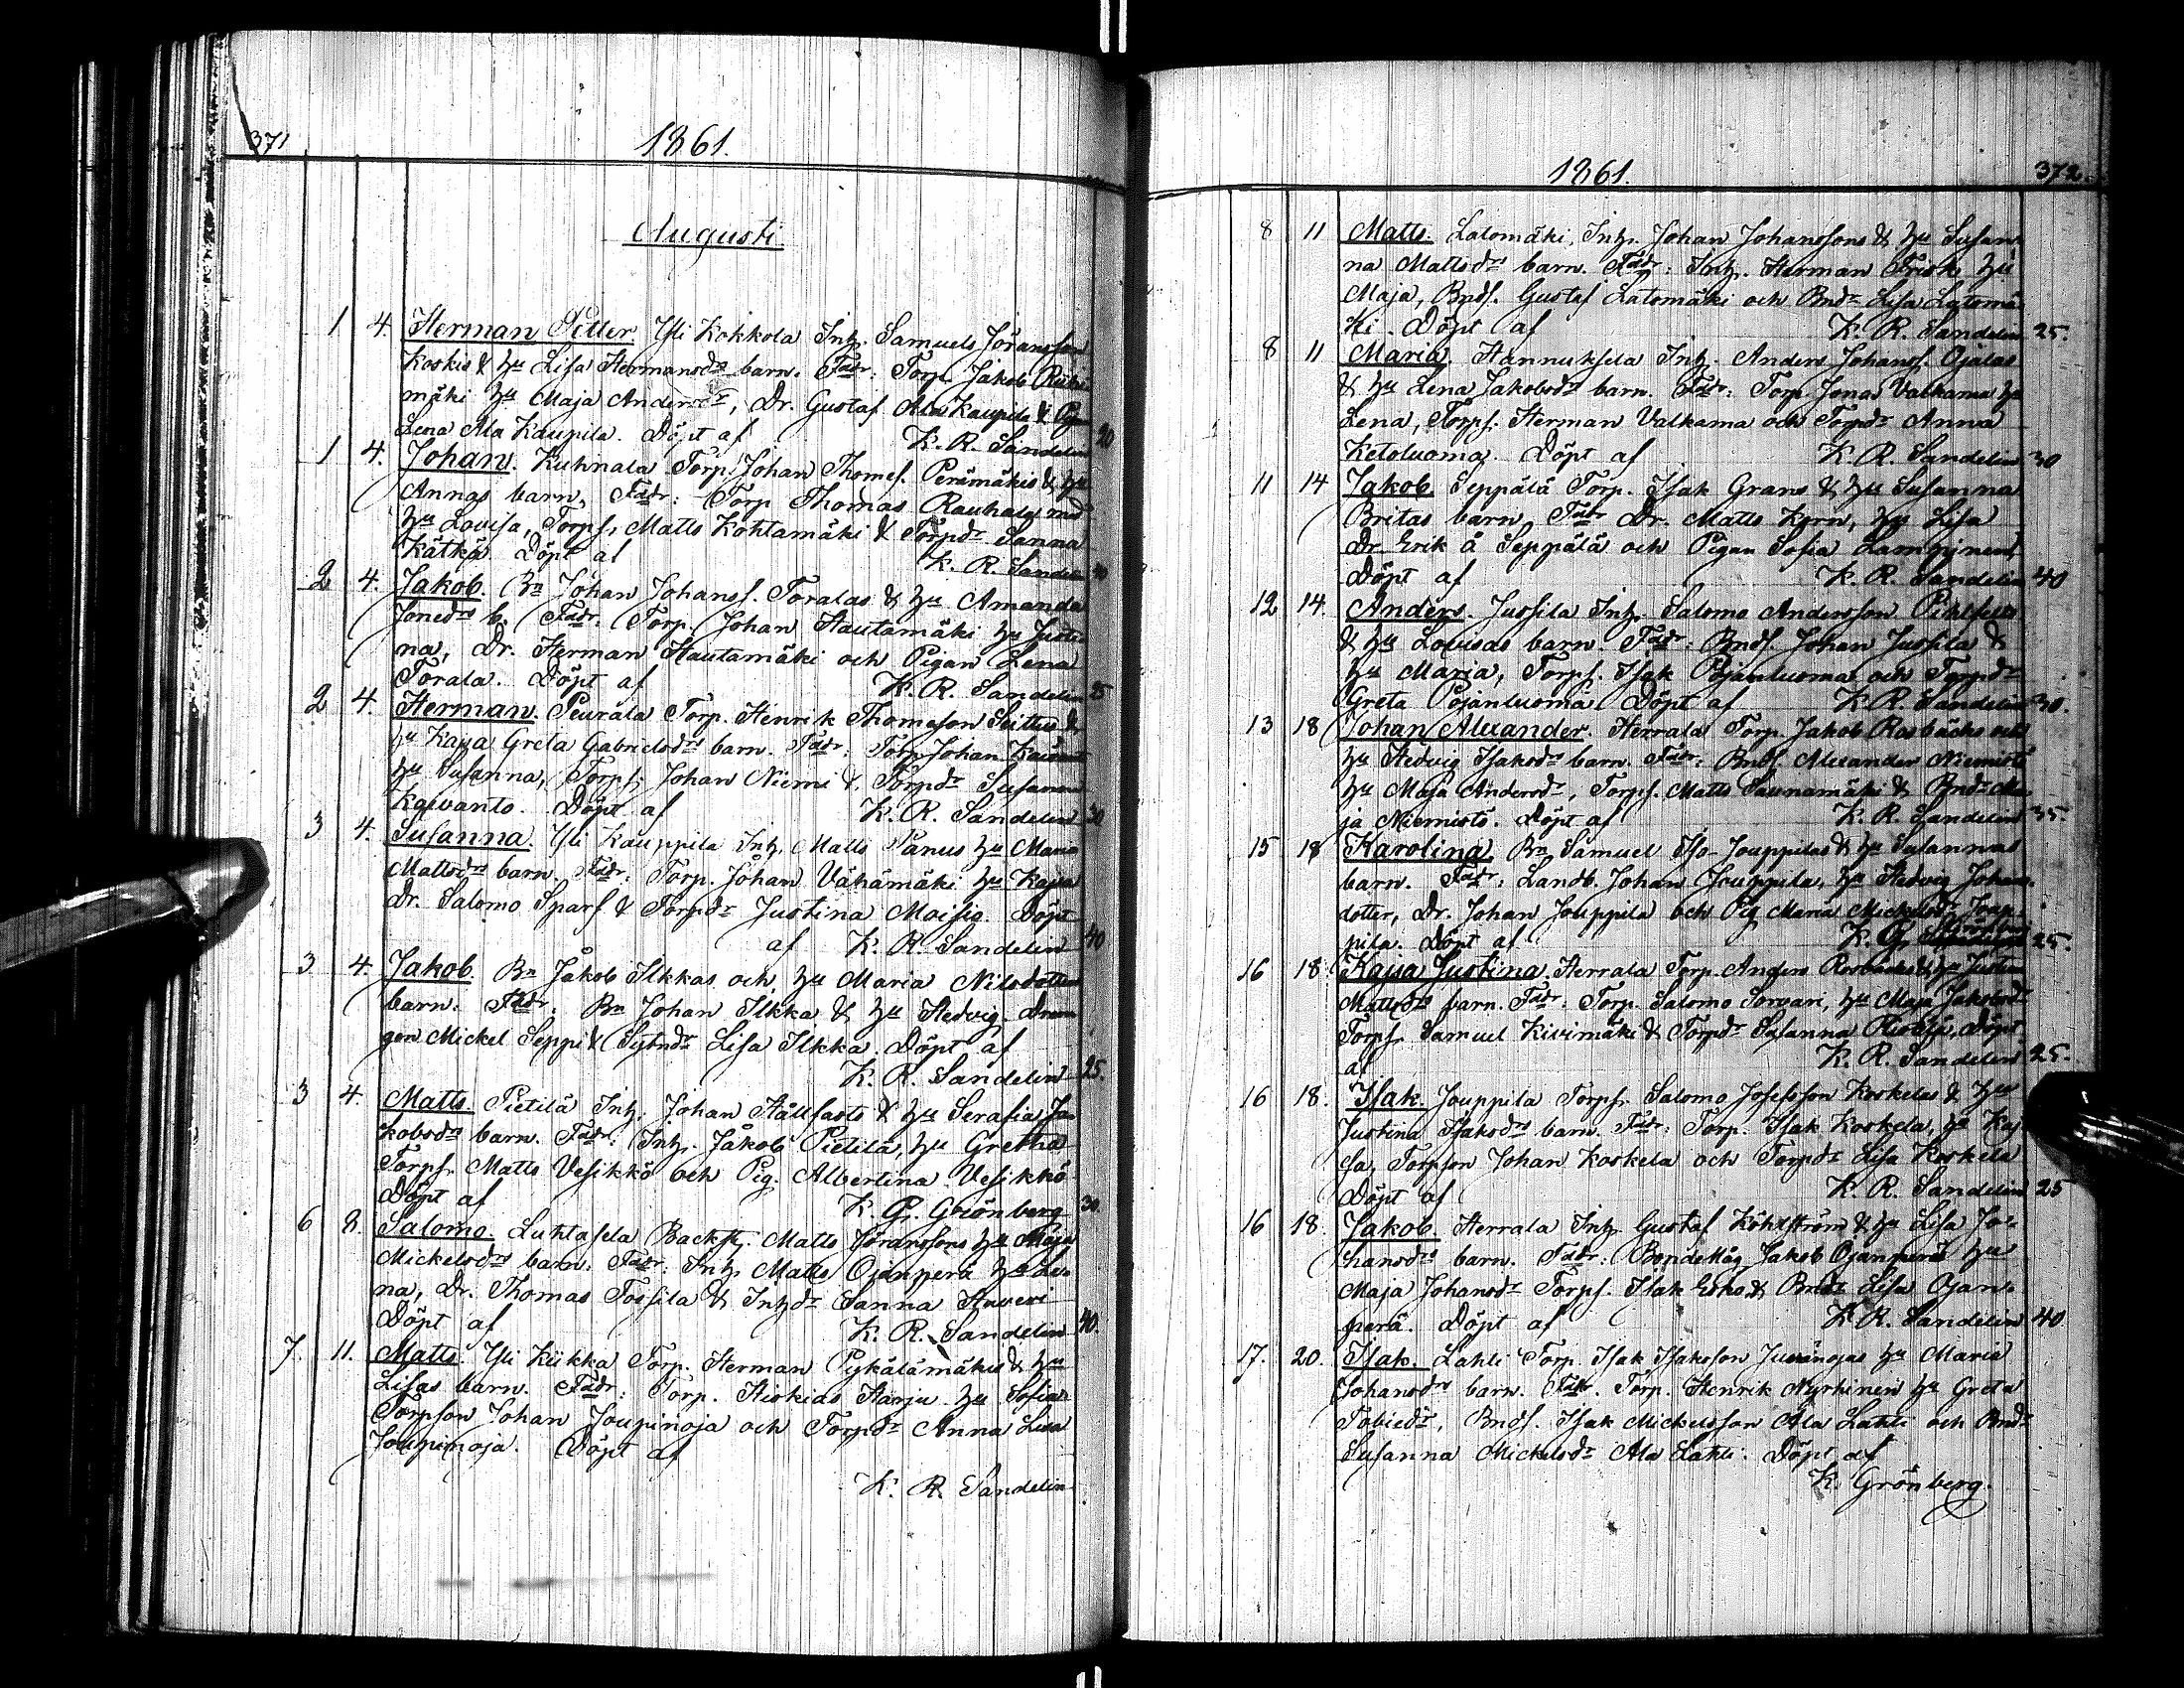 371
1861.
Augusti
1 4. Herman Petter. Yli Kokkola Inh. Samuels Jöransson
Koskis & hu Lisa Hermansdrs barn. Faddr: Torp. Jakob
mäki hu Maja Andersdr, Dr. Gustaf Ala Kaupila &
Lena Ala Kaupila. Döpt af K. R. Sandelin 20
1 4. Johan. Kuhnala Torp. Johan Thomes. Perämäkis & hu
Annas barn. Faddr: Torp Thomas Rauhala med
hu Lovisa, Torps. Matts Kohtamäki & Torpdr Sanna
Kätkä. Döpt af K. R. Sandelin
2 4. Jakob. Bn Johan Johans. Toralas & hu Amanda
Jonedrs b. Faddr. Torp. Johan Hautamäki hu Justi
na, Dr. Herman Hautamäki och Pigan Lena
Torala. Döpt af K. R. Sandelin 25
2 4. Herman. Peurala Torp. Henrik Thomasson &
hu Kajsa Greta Gabrielsdrs barn. Faddr: Torp Johan
hu Susanna, Torps. Johan Niemi & Torpdr Susanna
Kaivanto. Döpt af K. R. Sandelin 30
3 4. Susanna. Yli Kauppila Inh. Matts Panus hu Maria
Mattsdrs barn. Faddr: Torp. Johan Vähämäki hu Kajsa
Dr. Salomo Sparf & Torpdr Justina Moisio. Döpt
af K. R. Sandelin 40
3 4. Jakob. Bn Jakob Ilkkas och hu Maria Nilsdotters
barn. Faddr: Bn Johan Ilkka & hu Hedvig. Dren
gen Mickel Seppi & Sytndr Lisa Ilkka. Döpt af
K. R. Sandelin 25.
3 4. Matts. Pietilä Inh. Johan Stålfasts & hu Serafia Ja
kobsdrs barn. Faddr: Inh. Jakob Pietilä, hu Gretha
Torps. Matts Vesikkö och Pig. Albertina Vesikkö
Döpt af K. G. Grönberg 30.
6 8. Salomo. Luhtasela Backst. Matts Jöranssons hu Maja
Mickelsdrs barn. Faddr: Inh. Matts Ojanperä hu Le
na, Dr. Thomas Tossila & Inhdr Sanna Haveri
Döpt af K. R. Sandelin 40.
7. 11. Matts. Yli Kiikka Torp. Herman Pykälämäkis & hu
Lisas barn. Faddr: Torp. Hiskias Harju hu Sofia
Torpson Johan Joupinoja och Torpdr Anna Lisa
Joupinoja. Döpt af
K. R. Sandelin
1861.
372.
8 11 Matts. Latomäki, Inh. Johan Johanssons & hu Susan
na Mattsdrs barn. Faddr: Inh. Herman Frisk hu
Maja, Bnds. Gustaf Latomäki och Bndr Lisa Latomä
ki. Döpt af K. R. Sandelin 25.
8 11 Maria. Hannuksela Inh. Anders Johans. Ojalas
& hu Lena Jakobsdrs barn. Faddr: Torp Jonas Valkama hu
Lena, Torps. Herman Valkama och Torpdr Anna
Ketoluoma. Döpt af K. R. Sandelin 30
11 14 Jakob. Seppälä Torp. Isak Grans & hu Susanna
Britas barn. Faddr Dr. Matts Korn, hu Lisa
Dr Erik å Seppälä och Pigan Sofia Lampinen,
Döpt af K. R. Sandelin 40
12 14. Anders. Jussila Inh. Salomo Andersson
& hu Lovisas barn. Faddr: Bnds. Johan Jussila &
hu Maria, Torps. Isak Pojanluoma och Torpdr
Greta Pojanluoma. Döpt af K. R. Sandelin 30.
13 18 Johan Alexander. Herrala Torp. Jakob Rosbacks och
hu Hedvig Isaksdrs barn. Faddr: Bnds. Alexander Niemistö
hu Maja Andersdr, Torps. Matts Saunamäki & Bndr Ma
ja Niemistö. Döpt af K. R. Sandelin 35.
15 18 Karolina. Bn Samuel Iso-Jouppilas & hu Susannas
barn. Faddr: Landb. Johan Jouppila, hu Hedvig Johans
dotter, Dr. Johan Jouppila och Pig Maria Mickelsdr Joup
pila. Döpt af K. G. 25.
16 18 Kajsa Justina. Herrala Torp. Anders Rosbacks & hu Justina
Mattsdrs barn. Faddr: Torp. Salomo Sorvari, hu Maja Jakobsdr
Torps. Samuel Kivimäki & Torpdr Susanna Döpt
af K. R. Sandelin 25.
16 18. Isak. Jouppila Torps. Salomo Josefsson Koskelas & hu
Justina Isaksdrs barn. Faddr: Torp. Isak Koskela, hu Kaj
sa, Torpson Johan Koskela och Torpdr Lisa Koskela
Döpt af K. R. Sandelin 25
16 18. Jakob. Herrala Inh Gustaf Köhlström & hu Lisa Jo
hansdrs barn. Faddr: Bondemåg Jakob Ojanperä hu
Maja Johansdr Torps. Isak Esko & Bndr Lisa Ojan
perä. Döpt af K R. Sandelin 40
17. 20. Isak. Lahti Torp. Isak Isaksson hu Maria
Johansdrs barn. Faddr. Torp. Henrik Nyrhinen hu Greta
Tobiedr, Bnds. Isak Mickelsson Ala Lahti och Bndr
Susanna Mickelsdr Ala Lahti. Döpt af
K. Grönberg.